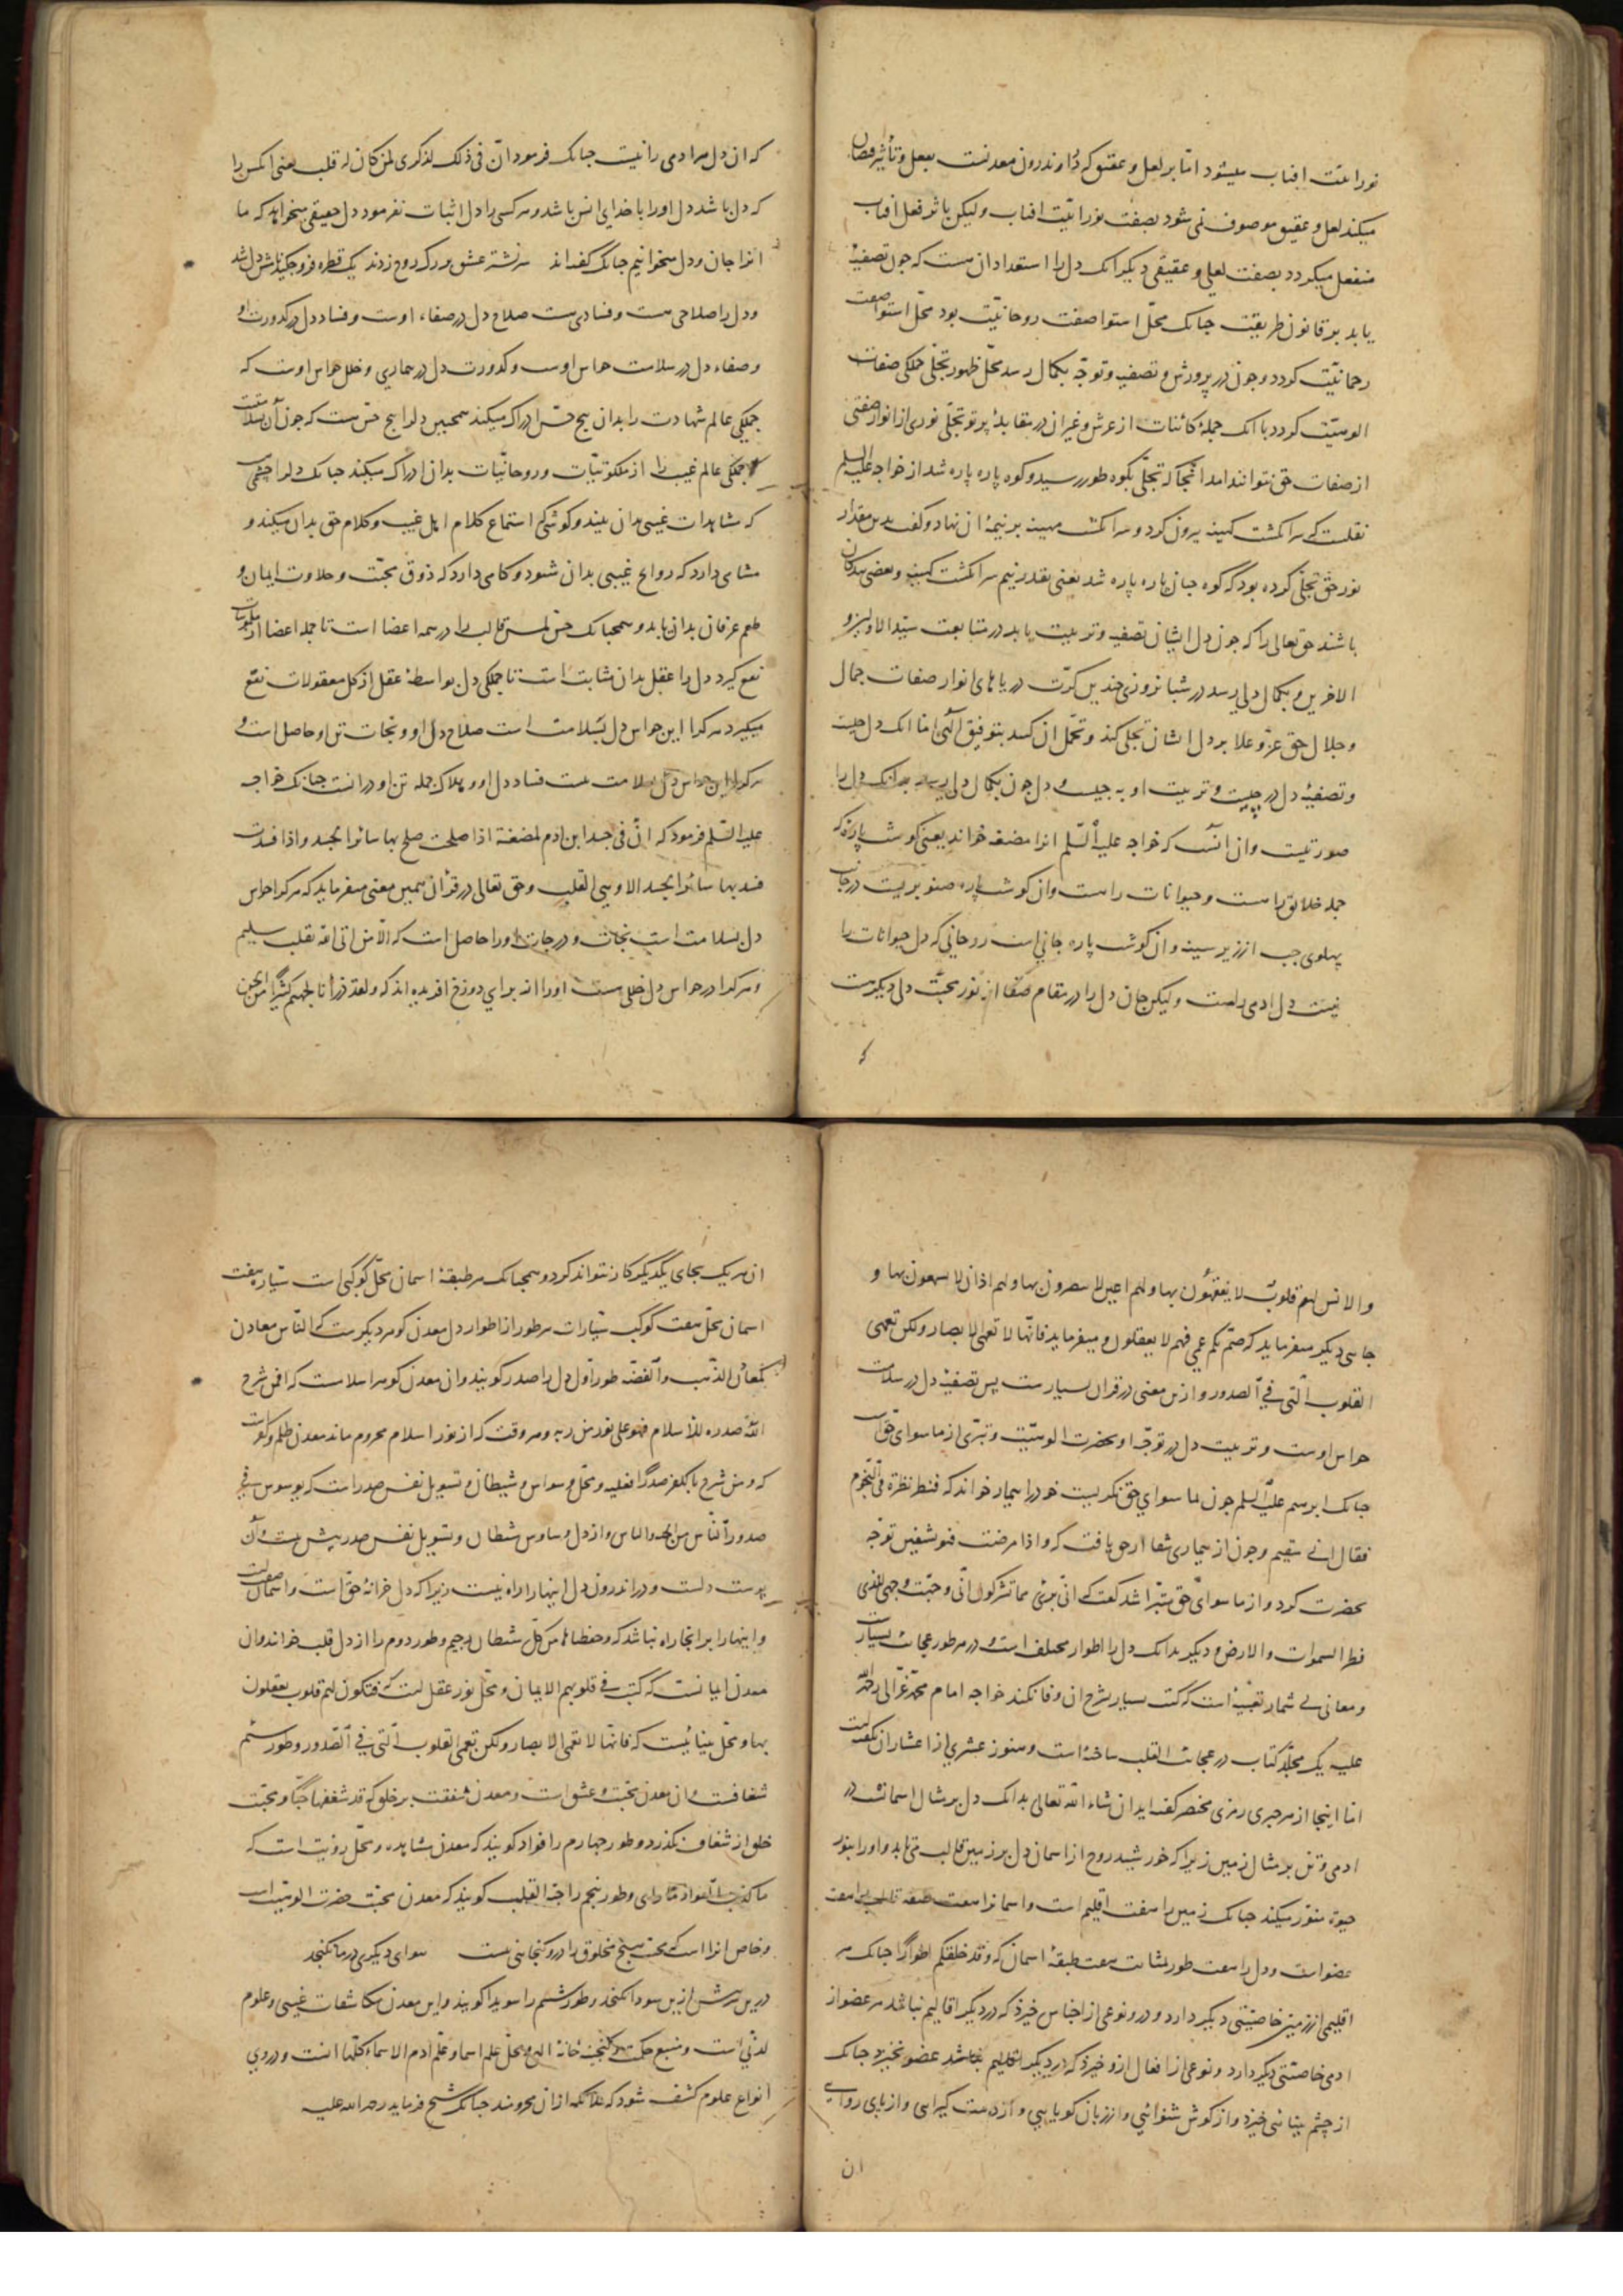 نورانیت افتاب میشود اما بر لعل و عقیق که در اندرون معدنست بفعل و تأثیر فیضان
میکند لعل و عقیق موصوف نمی شود بصفت نورانیّت افتاب ولیکن باثر فعل افتاب
منفعل میکردد بصفت لعلی و عقیقی دیکر انک دل را استعداد ان هست که جون تصفیهٔ
یابد بر قانون طریقت جنانک محلّ استوا صفت روحانیّت بود محلّ استوا صفت
رحمانیّت کردد و جون در پرورش و تصفیه و توجّه بکمال رسد محلّ ظهور تجلّی جملکی صفات
الوهیّت کردد با انک جملهٔ کائنات از عرش و غیر ان در مقابلهٔ پرتو تجلّی نوری از انوار صفتی
از صفات حق نتوانند امد انجا که تجلّی بکوه طور رسید و کوه پاره پاره شد از خواجه علیه السلم
نقلست که سر انکشت کهینه بیرون کرد و سر انکشت مهینه بر نیمهٔ ان نهاد و کفت بدین مقدار
نور حق تجلّی کرده بود که کوه جنان پاره پاره شد یعنی بقدر نیم سر انکشت کهینه و بعضی بندکان
باشند حق تعالی را که جون دل ایشان تصفیه و تربیت یابد در متابعت سیّد الاولین و
الاخرین و بکمال دلی رسد در شبانروزی جندین کرّت دریاهای انوار صفات جمال
و جلال حق عزّ و علا بر دل ایشان تجلّی کند و تحمّل ان کند بتوفیق الهی امّا انک دل جیست
و تصفیهٔ دل در جیست و تربیت او به جیست و دل جون بکمال دلی رسد بدانک دل را
صورتیست و ان انست که خواجه علیه السّلم انرا مضغه خواند یعنی کوشت پارهٔ که
جمله خلایق را هست و حیوانات راست و ان کوشت پاره صنوبریست در جانب
پهلوی جب از زیر سینه و ان کوشت پاره جانی است روحانی که دل حیوانات را
نیست دل ادمی راست ولیکن جان دل را در مقام صفا از نور محبّت دلی دیکر هست
که
که ان دل هر ادمی را نیست جنانک فرمود انّ فی ذلک لذکری لمن کان له قلب یعنی انکس را
که دل باشد دل او را با خدای انس باشد و هر کسی را دل اثبات نفرمود دل حقیقی میخواهد که ما
انرا جان و دل میخوانیم جنانک کفته اند سر نشتر عشق بر رک روح زدند یک قطره فرو جکید نامش دل شد
و دل را صلاحی هست و فسادی هست صلاح دل در صفاء اوست و فساد دل در کدورت او
و صفاء دل در سلامت حواس اوست و کدورت دل در بیماری و خلل حواس اوست که
جملکی عالم شهادت را بدان پنج حسّ ادراک میکند همجنین دل را پنج حسّ هست که جون آن بسلامتست
جملکی عالم غیب را از ملکوتیّات و روحانیّات بدان ادراک میکند جنانک دل را جشمی هست
که مشاهدات غیبی بدان بیند و کوشی که استماع کلام اهل غیب و کلام حق بدان میکند و
مشامی دارد که روایح غیبی بدان شنود و کامی دارد که ذوق محبّت و حلاوت ایمان و
طعم عرفان بدان یابد و همجنانک حسّ لمس قالب را در همه اعضا است تا جمله اعضا از ملموسات
نفع کیرد دل را عقل بدان مثابت است تا جملکی دل بواسطهٔ عقل از کل معقولات نفع
میکیرد هر کرا این حواس دل بسلامت است صلاح دل او و نجات تن او حاصل است و
هر کرا این حواس دل بسلامت نیست فساد دل او و هلاک جمله تن او در انست جنانک خواجه
علیه السّلم فرمود که انّ فی جسد ابن ادم لمضغة اذا صلحت صلح بها سائر الجسد و اذا فسدت
فسد بها سائر الجسد الا و هی القلب و حق تعالی در قرآن همین معنی میفرماید که هر کرا حواس
دل بسلامت است نجات و درجات او را حاصل است که الّا من اتی الله بقلب سلیم
و هر کرا در حواس دل خللی هست او را از برای دوزخ افریده اند که و لقد ذرأنا لجهنم کثیرًا من الجن
و الانس لهم قلوب لا یفقهون بها و لهم اعین لا یبصرون بها و لهم اذان لا یسمعون بها و
جایی دیکر میفرماید که صمّ بکم عمی فهم لا یعقلون و میفرماید فانّها لا تعمی الابصار ولکن تعمی
القلوب الّتی فی الصدور و ازین معنی در قران بسیار ست پس تصفیهٔ دل در سلامت
حواس اوست و تربیت دل در توجّه او بحضرت الوهیّت و تبرّی از ما سوای حق است
جنانک ابرهیم علیه السلم جون بما سوای حق نکریست خود را بیمار خواند که فنظر نظرة فی النّجوم
فقال انّی سقیم و جون از بیماری شفا از حق یافت که و اذا مرضت فهو یشفین توجّه
بحضرت کرد و از ما سوای حق متبرّا شد کفت که انّی بریٔ مما تشرکون انّی وجّهت وجهی للذی
فطر السموات و الارض و دیکر بدانک دل را اطوار مختلف است و در هر طور عجائب بسیارست
و معانی بی شمار تعبیه است که کتب بسیار بشرح ان وفا نکند خواجه امام محمد غزالی رحمة الله
علیه یک مجلّد کتاب در عجائب القلب ساخته است و هنوز عشری از اعشار ان نکفته است
امّا اینجا از هر جیزی رمزی مختصر کفته اید ان شاء الله تعالی بدانک دل بر مثال اسمانست در
ادمی و تن بر مثال زمین زیرا که خورشید روح از اسمان دل بر زمین قالب می تابد و او را بنور
حیوة منوّر میکند جنانک زمین را هفت اقلیم است و اسمانرا هفت طبقه قالب را هفت
عضو است و دل را هفت طور بمثابت هفت طبقهٔ اسمان که و قد خلقکم اطوارًا جنانک هر
اقلیمی از زمین خاصیّتی دیکر دارد و درو نوعی از اجناس خیزد که در دیکر اقالیم نباشد هر عضو از
ادمی خاصیّتی دیکر دارد و نوعی از افعال ازو خیزد که از دیکر عضو نخیزد جنانک
از چشم بینائی خیزد و از کوش شنوائی و از زبان کویایی و از دست کیرایی و از پای روایی
ان
ان هر یک بجای یکدیکر کار نتواند کرد و همجنانک هر طبقهٔ اسمان محلّ کوکبی است سیّاره هفت
اسمان محلّ هفت کوکب سیّارات هر طور از اطوار دل معدن کوهر دیکرست که النّاس معادن
کمعادن الذّهب و الفضّه طور اوّل دل را صدر کویند و ان معدن کوهر اسلامست که افمن شرح
اللّه صدره للاسلام فهو علی نور من ربه و هر وقت که از نور اسلام محروم ماند معدن ظلم و کفر است
که و من شرح بالکفر صدرًا فعلیه و محل وسواس شیطان و تسویل نفس صدر است که یوسوس فی
صدور النّاس من الجنة و الناس و از دل وساوس شیطان و تسویل نفس صدر بیش نیست و آن
پوست دلست و در اندرون دل اینها را راه نیست زیرا که دل خزانهٔ حق است و اسمان صفت است
و اینها را بر انجا راه نباشد که و حفظناها من کلّ شیطان رجیم و طور دوم را از دل قلب خوانند و ان
معدن ایمانست که کتب فی قلوبهم الایمان و محلّ نور عقل است که فتکون لهم قلوب یعقلون
بها و محلّ بینائیست که فانّها لا تعمی الابصار ولکن تعمی القلوب الّتی فی الصّدور و طور سیّم
شغافست و ان معدن محبّت و عشق است و معدن شفقت بر خلق که قد شغفها حبّا و محبّت
خلق از شغاف نکذرد و طور جهارم را فؤاد کویند که معدن مشاهده و محلّ رؤیت است که
ما کذب الفؤاد ما رای و طور پنجم را حبّة القلب کویند که معدن محبّت حضرت الوهیّت است
و خاص انرا است که محبت هیج مخلوق را درو کنجایی نیست هوای دیکری در ما نکنجد
درین سر بیش ازین سودا نکنجد و طور ششم را سویدا کویند و این معدن مکاشفات غیبی و علوم
لدنّی است و منبع حکمت و کنجینهٔ خانهٔ الهی و محلّ علم اسما و علّم ادم الاسماء کلّها انست و دروی
انواع علوم کشف شود که ملائکه از ان محرومند جنانک شیخ فرماید رحمة الله علیه